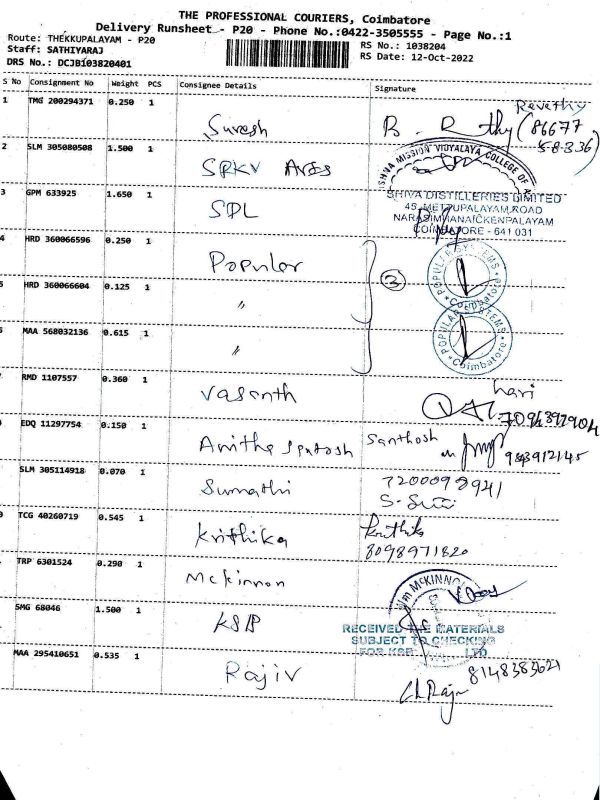 THE PROFESSIONAL COURIERS, Coimbatore
Delivery Runsheet - P20 - Phone No.:0422-3505555 - Page No.:1
Route: THEKKUPALAYAM - P20
RS No.: 1038204
Staff: SATHIYARAJ
RS Date: 12-Oct-2022
DRS No.: DCJB103820401
S No Consignment No Weight PCS Consignee Details Signature
1 TMG 200294371 0.250 1 Suresh
Revethy
2 SLM 305080508 1.500 1 SRKV
SHVA MISSION VIDYALAYA COLLEGE OF
3 GPM 633925 1.650 1 SDL
SHIVA DISTILLERIES LIMITED
45, METTUPALAYAM ROAD
NARASIMHANAICKENPALAYAM
COIMBATORE - 641 031
4 HRD 360066596 0.250 1 Popular
3
POPULAR SYSTEMS Coimbatore
HRD 360066604 0.125 1 "
MAA 568032136 0.615 1 "
POPULAR SYSTEMS Coimbatore
RMD 1107557 0.360 1 Vasanth
hari
EDQ 11297754 0.150 1 Anitha Santosh Santhosh
SLM 305114918 0.070 1 Sumathi
TCG 40260719 0.545 1 Krithika Krithika
8098971820
TRP 6301524 0.290 1 Mckinnon
MCKINNO
SMG 68046 1.500 1 KSB
RECEIVED THE MATERIALS
SUBJECT TO CHECKING
FOR KSB LTD.
MAA 295410651 0.535 1 Rajiv
8148383621